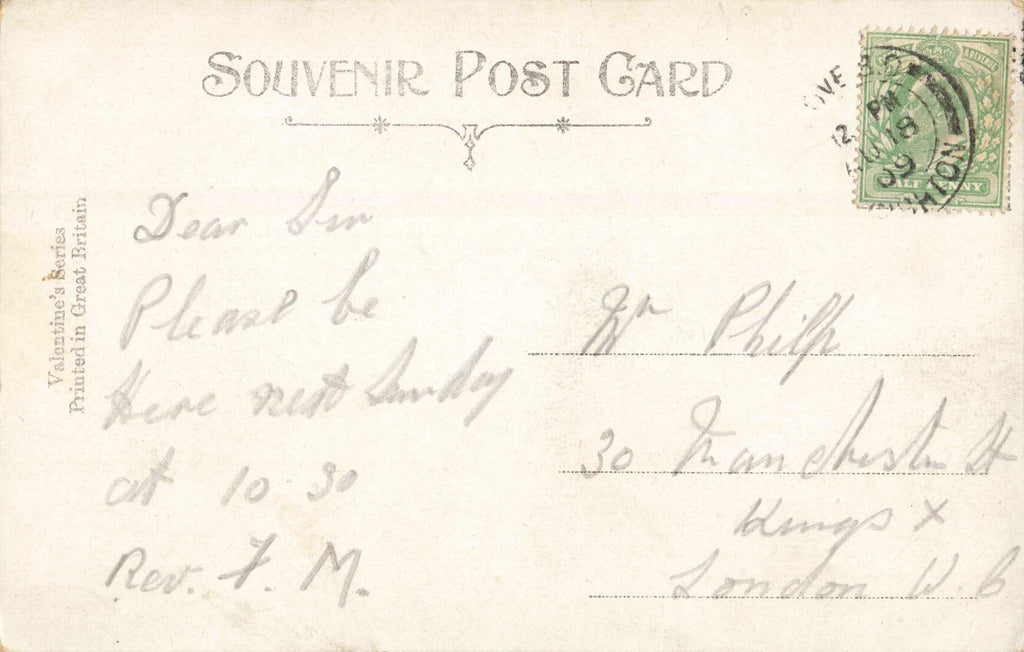 SOUVENIR POST CARD
Valentine's Series
Printed in Great Britain
Dear Sir
Please be
Here next Sunday
at 10.30
Rev. F. M.
Mr Philp
30 Manchester St
Kings X
London W.C
HALF PENNY
PM
18
09